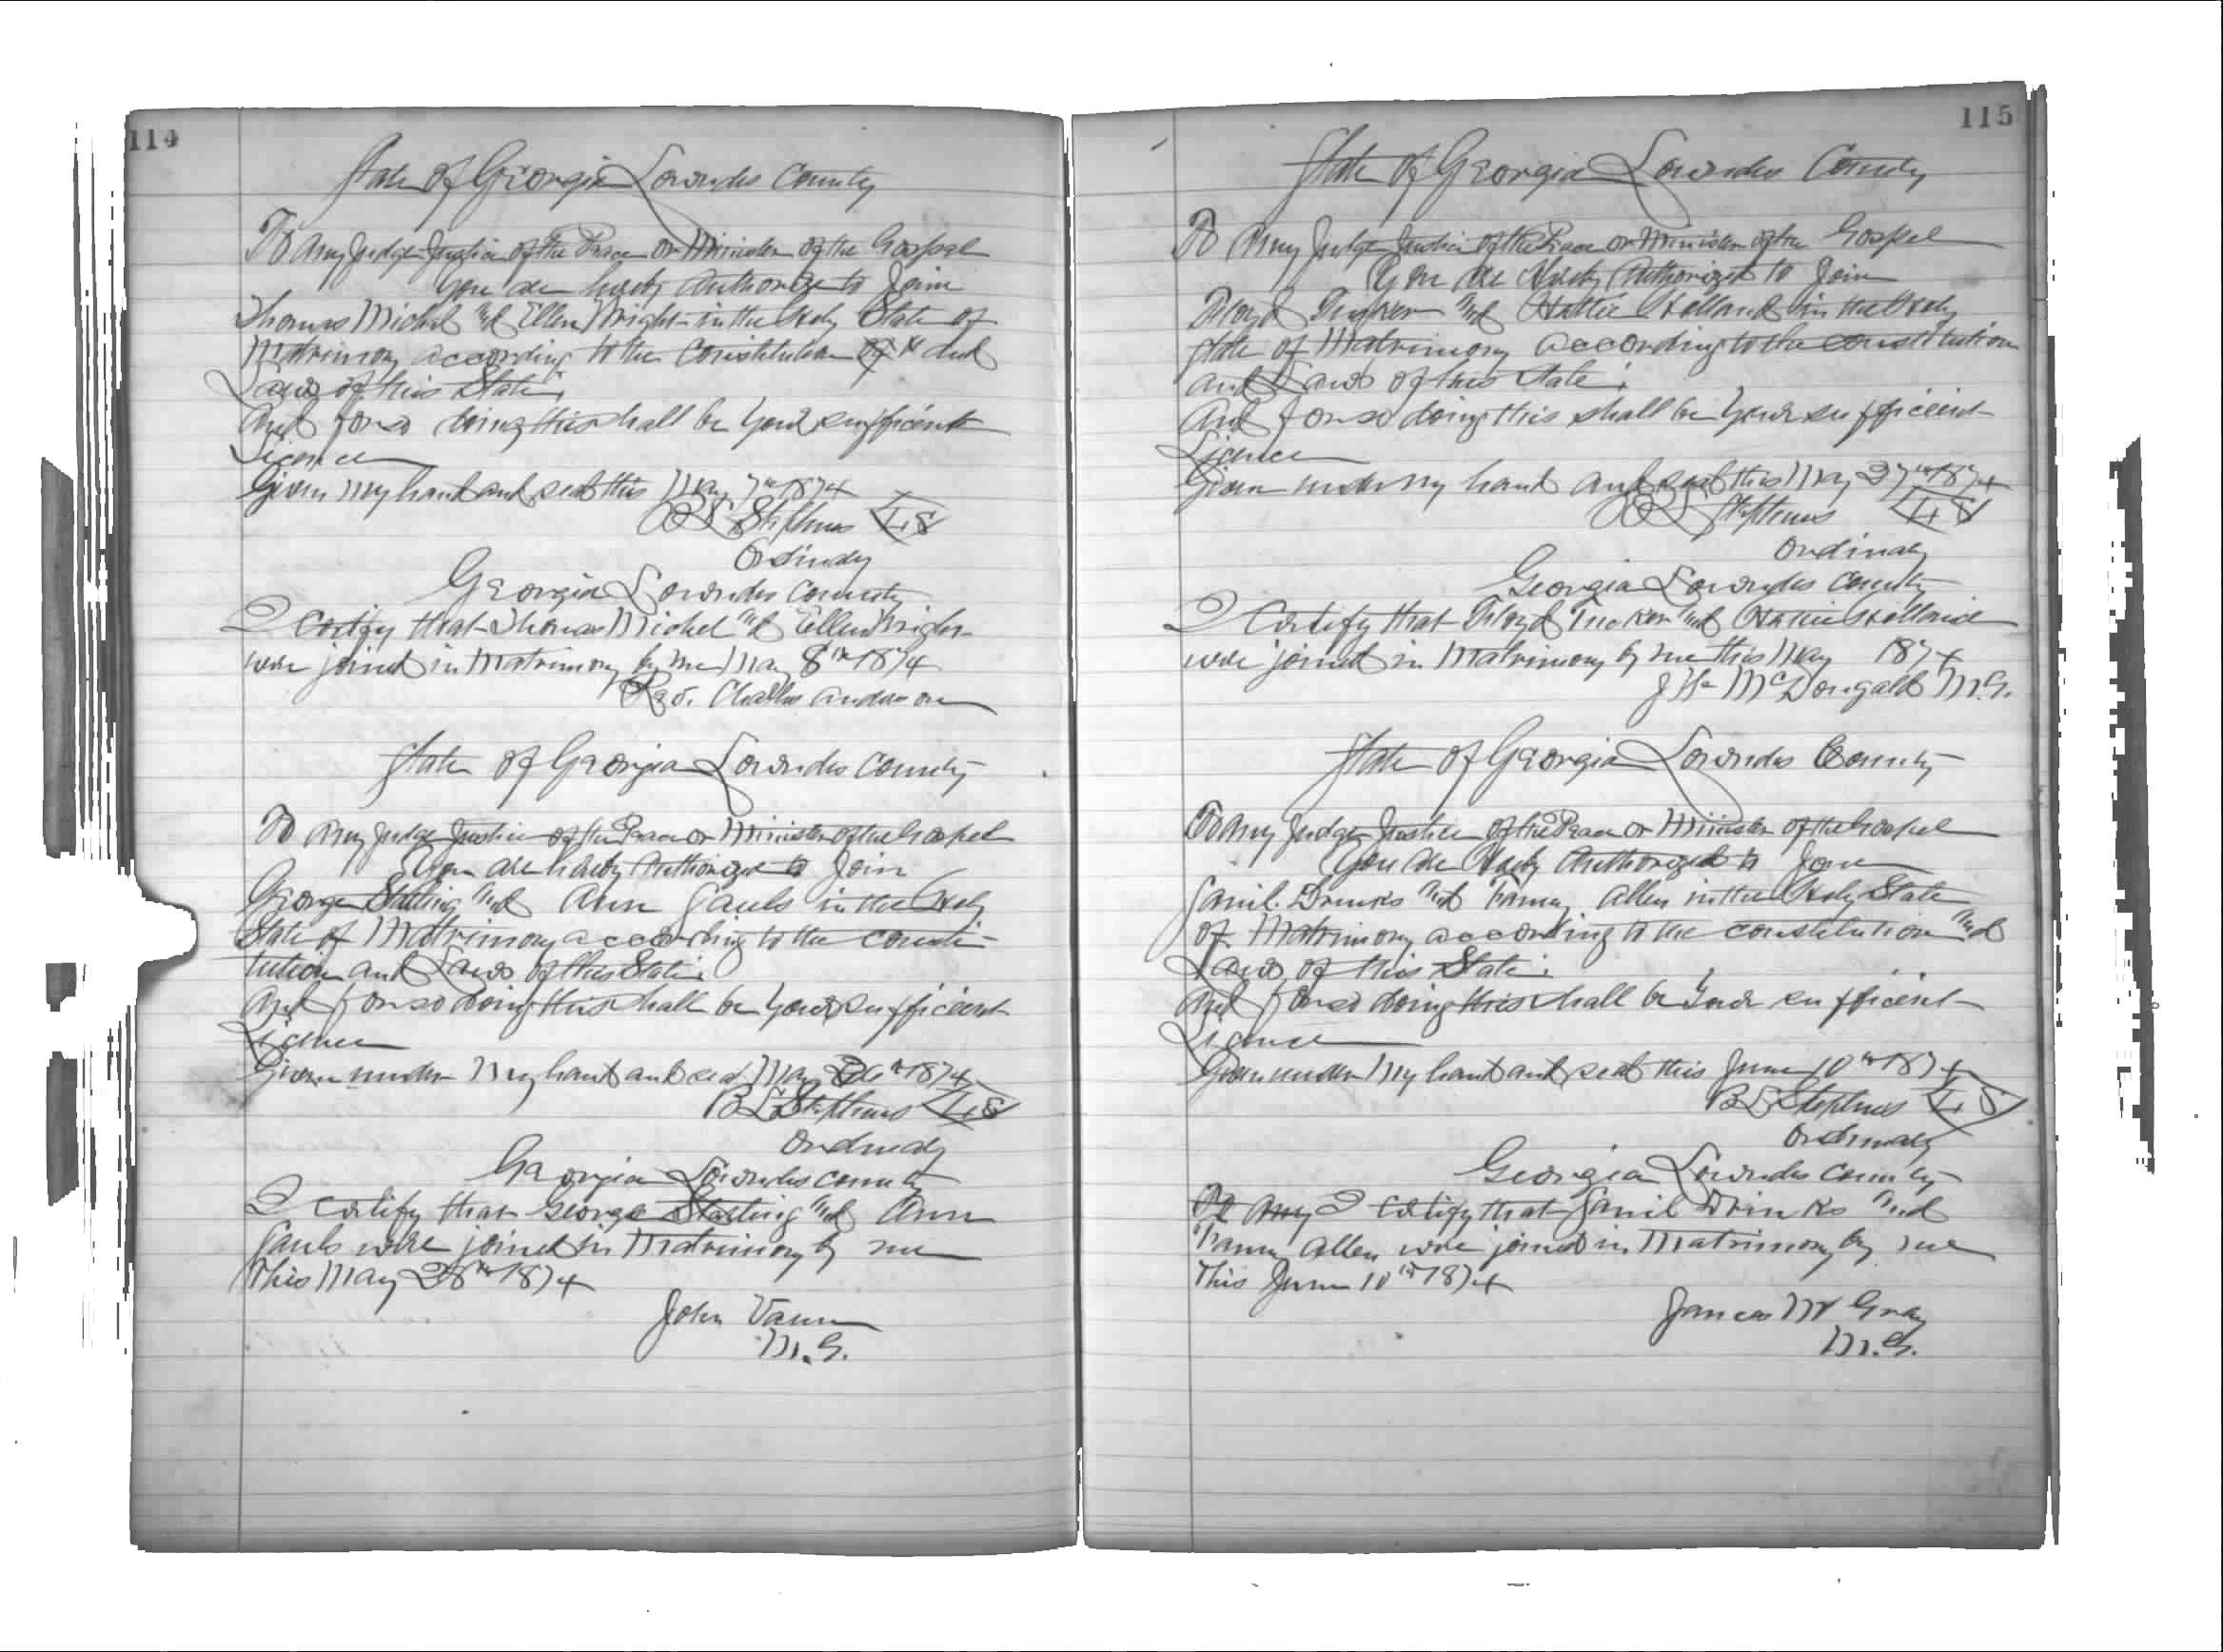 114
State of Georgia Lowndes County
To Any Judge Justice of the Peace or Minister of the Gospel
You are hereby Authorize to Join
Thomas Michel and Ellen Wright in the Holy State of
Matrimony according to the Constitution of and
Laws of this State.
And for so doing this shall be your sufficient
Licence
Given my hand and seal this May 7th 1874
B L Stephens L.S
Ordinary
Georgia Lowndes County
I Certify that Thomas Michel and Ellen Wright
were joined in Matrimony by me May 8th 1874
Rev. Charles Anderson
State of Georgia Lowndes County
To Any Judge Justice of the Peace or Minister of the Gospel
You are hereby Authorized to Join
George Stalling and Ann in the Holy
State of Matrimony according to the consti-
tution and Laws of this State.
And for so doing this shall be your sufficient
Licence
Given under My hand and seal May 1874
B L Stephens L.S
Ordinary
Georgia Lowndes county
I certify that George and Ann
were joined in Matrimony by me
This May 28th 1874
John Vann
M.G.
115
State of Georgia Lowndes County
To Any Judge Justice of the Peace or Minister of the Gospel
You are Hereby Authorized to Join
Floyd Tucker and Hattie Holland in the Holy
State of Matrimony according to the constitution
and Laws of this State.
And for so doing this shall be your sufficient
Licence
Given under my hand and seal this May 27th 1874
B L Stephens L.S
Ordinary
Georgia Lowndes County
I Certify that Floyd Tucker and Hattie Holland
were joined in Matrimony by me this May 1874
McDougald M.G.
State of Georgia Lowndes County
To Any Judge Justice of the Peace or Minister of the Gospel
You are Hereby Authorized to Join
and Fanny Allen in the Holy State
of Matrimony according to the constitution and
Laws of this State.
And for so doing this shall be your sufficient
Licence
Given under My hand and seal this June 10th 1874
B L Stephens L.S
Ordinary
Georgia Lowndes County
I Certify that and
Fanny Allen were joined in Matrimony by me
This June 10th 1874
James W Gray
M.G.